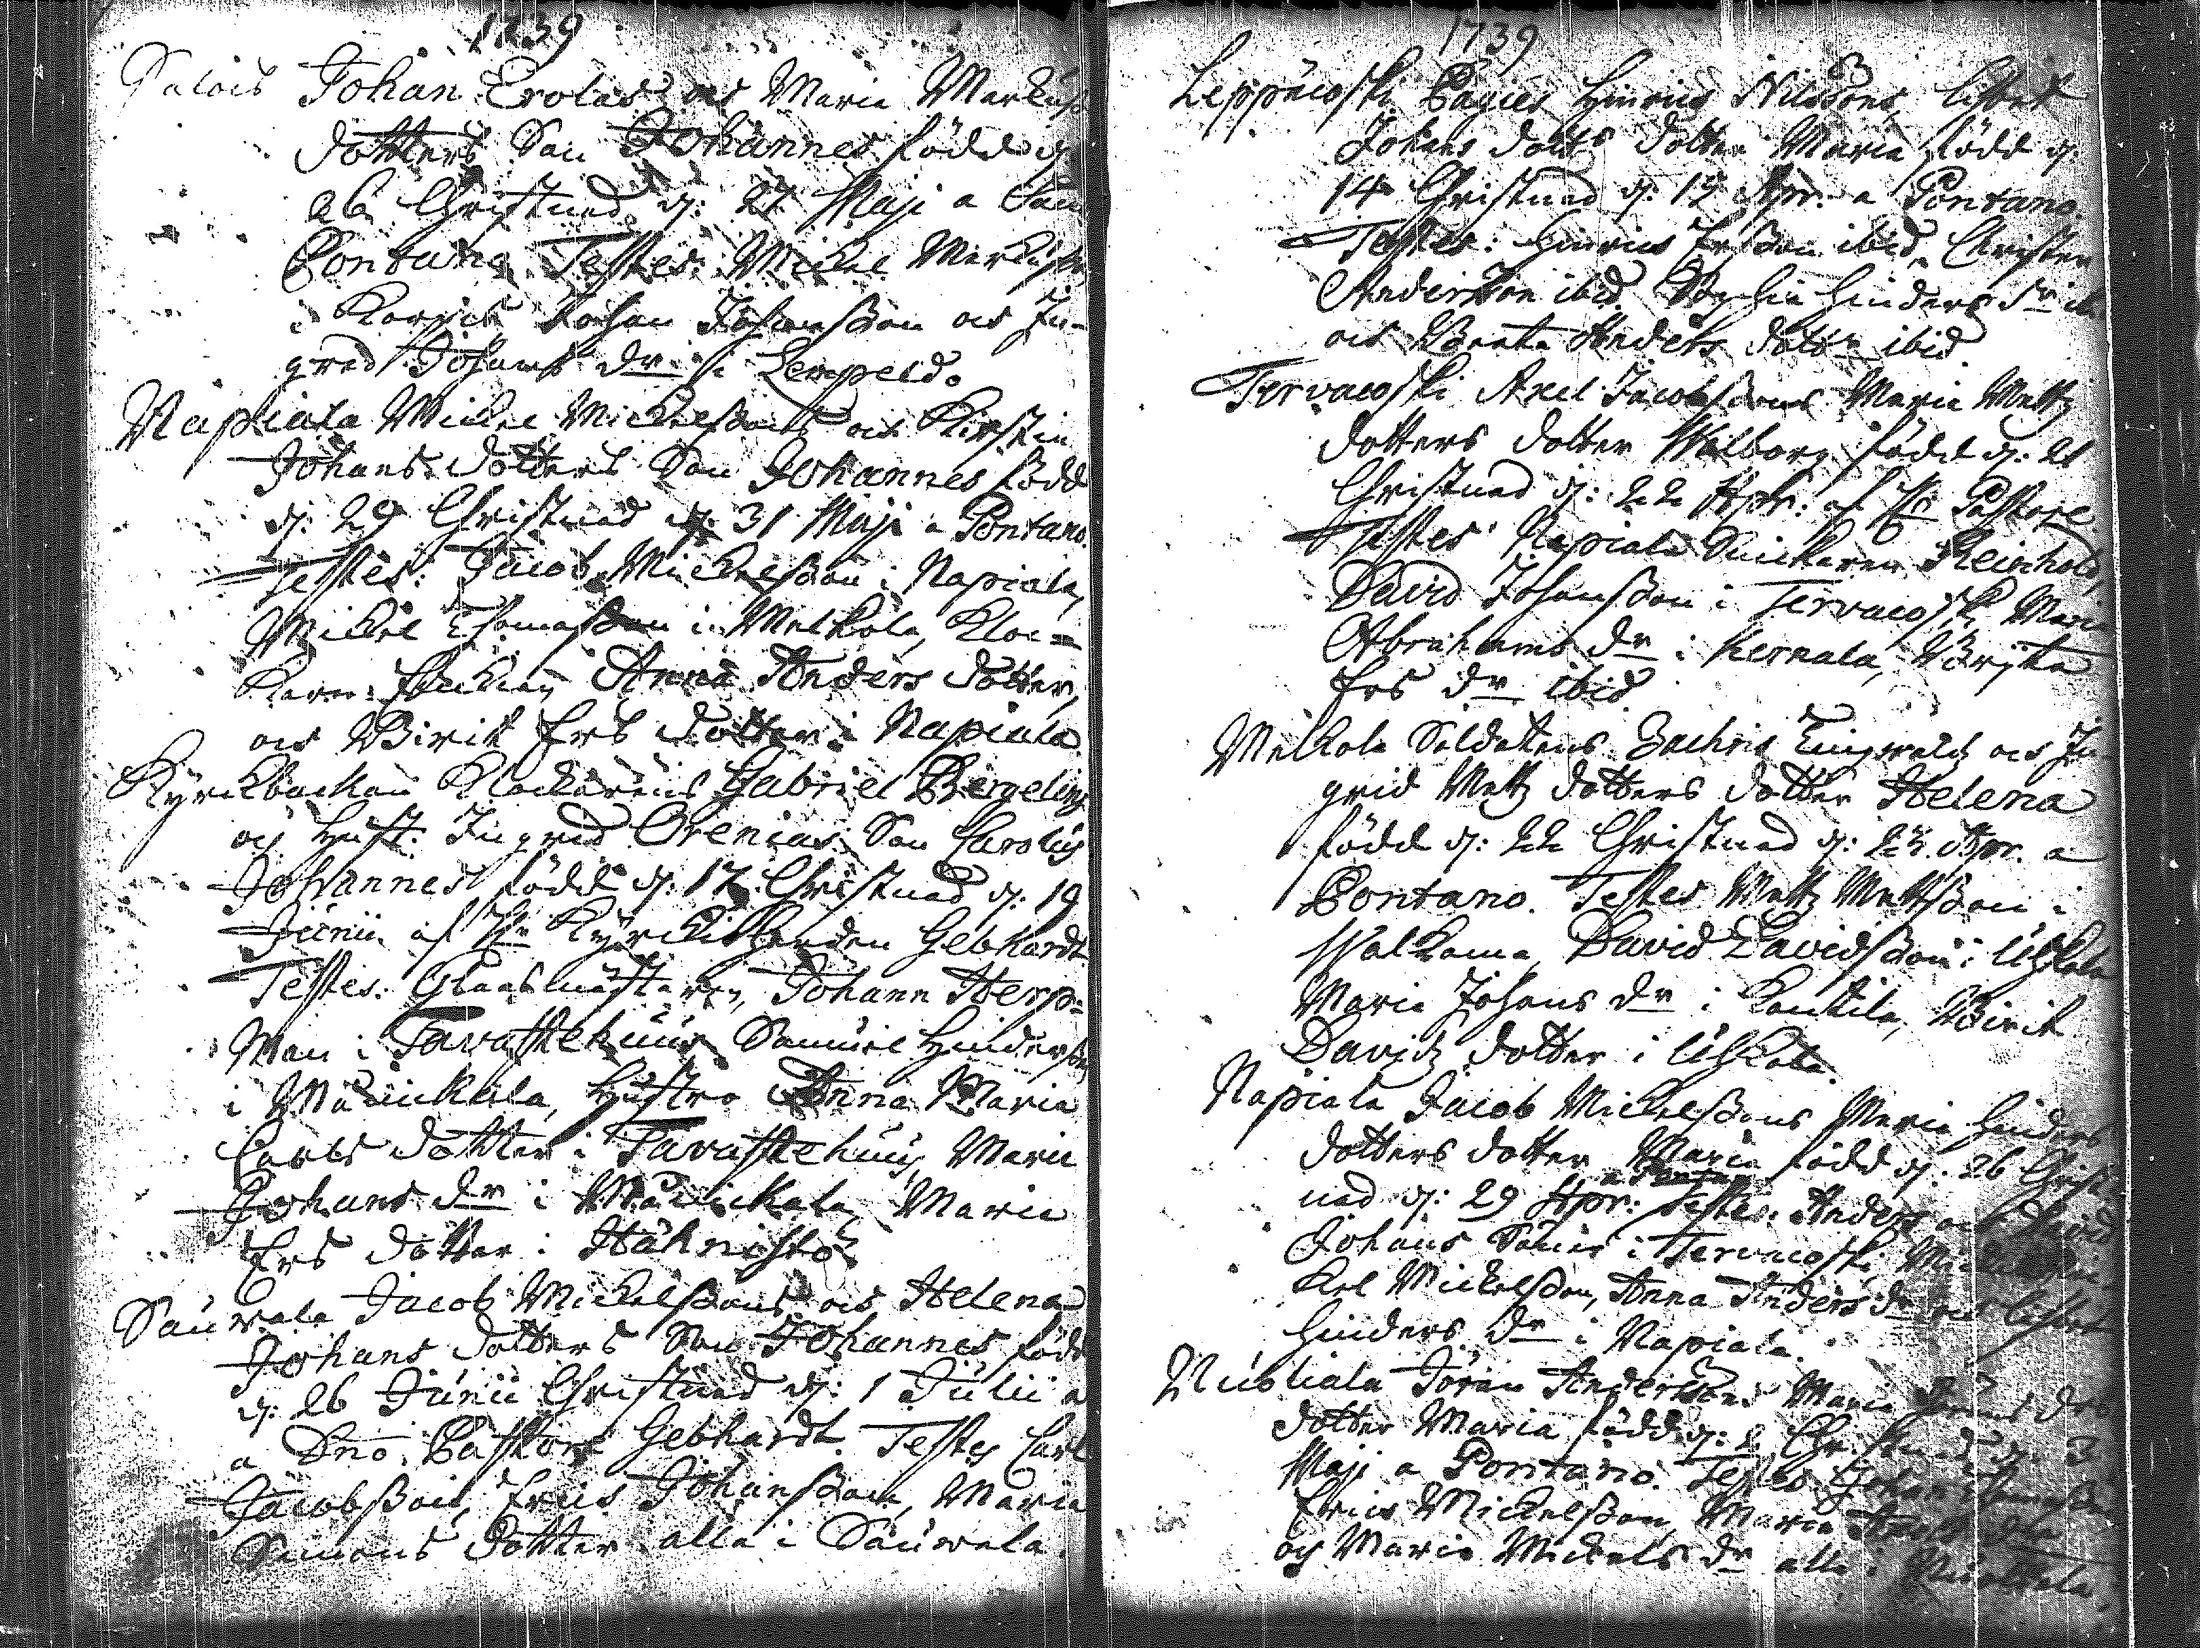 1739
Salois Johan Erolas och Maria Markus
dotters Son Johannes född d:
26 Christnad d: 27 Maji a
Pontano Testes: Michel Markusson
i Johan Johansson och In-
grid Johans dr i Lempeldo
Napiala Michel Michelssons och Kirstin
Johans dotters Son Johannes född
d: 29 Christnad d: 31 Maji a Pontano.
Testes: Jacob Michelsson i Napiala,
Michel Thomasson i Melkola, Kloc=
karens Anna Anders dotter,
och Birit Ers dotter i Napiala.
Kyrckbackan Klockarens Gabriel Bergelins
och Hust. Ingrid Orenias Son Carolus
Johannes född d: 17 Christnad d: 19
Junii af Hr Kyrckioherden Gebhardt
Testes: Glasmästaren, Johann Herp=
man i Tavastehuus Samuel Hindersson
i Mäuickala, Hustro Anna Maria
Carls dotter i Tavastehuus, Maria
Johans dr i Mäuickala, Maria
Ers dotter i Hähnistö
Sauvala Jacob Michelssons och Helena
Johans dotters Son Johannes född
d: 26 Junii Christnad d: 1 Julii a
a Dno. Pastore Gebhardt. Testes Carl
Jacobsson, Eric Johansson, Maria
Simons dotter alla i Sauvala.
1739
Leppäcoski Hinric Nilssons Lisbet
Johans dotts dotter Maria född d:
14 Christnad d: 15 Apr. a Pontano.
Testes: Hinric Ersson ibid, Christer
Andersson ibid, Hinders dr ib
och Beata Anders dotter ibid.
Tervacoski Axel Jacobssons Maria Matts
dotters dotter Walborg född d: 21
Christnad d: 22 Apr: af Hr Pastore
Testes Napiala Snickaren Reinhold,
David Johansson i Tervacoski, Maria
Abrahams dr i Kernala, Brijta
Ers dr ibid
Melkola Soldatens Zachris Lingwalds och In
grid Matts dotters dotter Helena
född d: 22 Christnad d: 23 Apr. a
Pontano. Testes Matts Mattsson i
Walkama, David Davidsson i Uhkola
Maria Johans dr i Kantila, Birit
Davids dotter i Uhkola.
Napiala Jacob Michelssons Maria Hinders
dotters dotter Maria född d: 26 Christ
nad d: 29 Apr: a Pontan Testes: Anders och David
Johans Söner i Tervacoski,
Michelsson, Anna Anders dr och Lisbet
Hinders dr i Napiala.
Nuoliala Jöran Anderssons Maria drs
dotter Maria född d: 2 Christnad d: 3
Maji a Pontano. Testes Johan
Eric Michelsson, Maria
och Maria Michels dr alla i Nuoliala